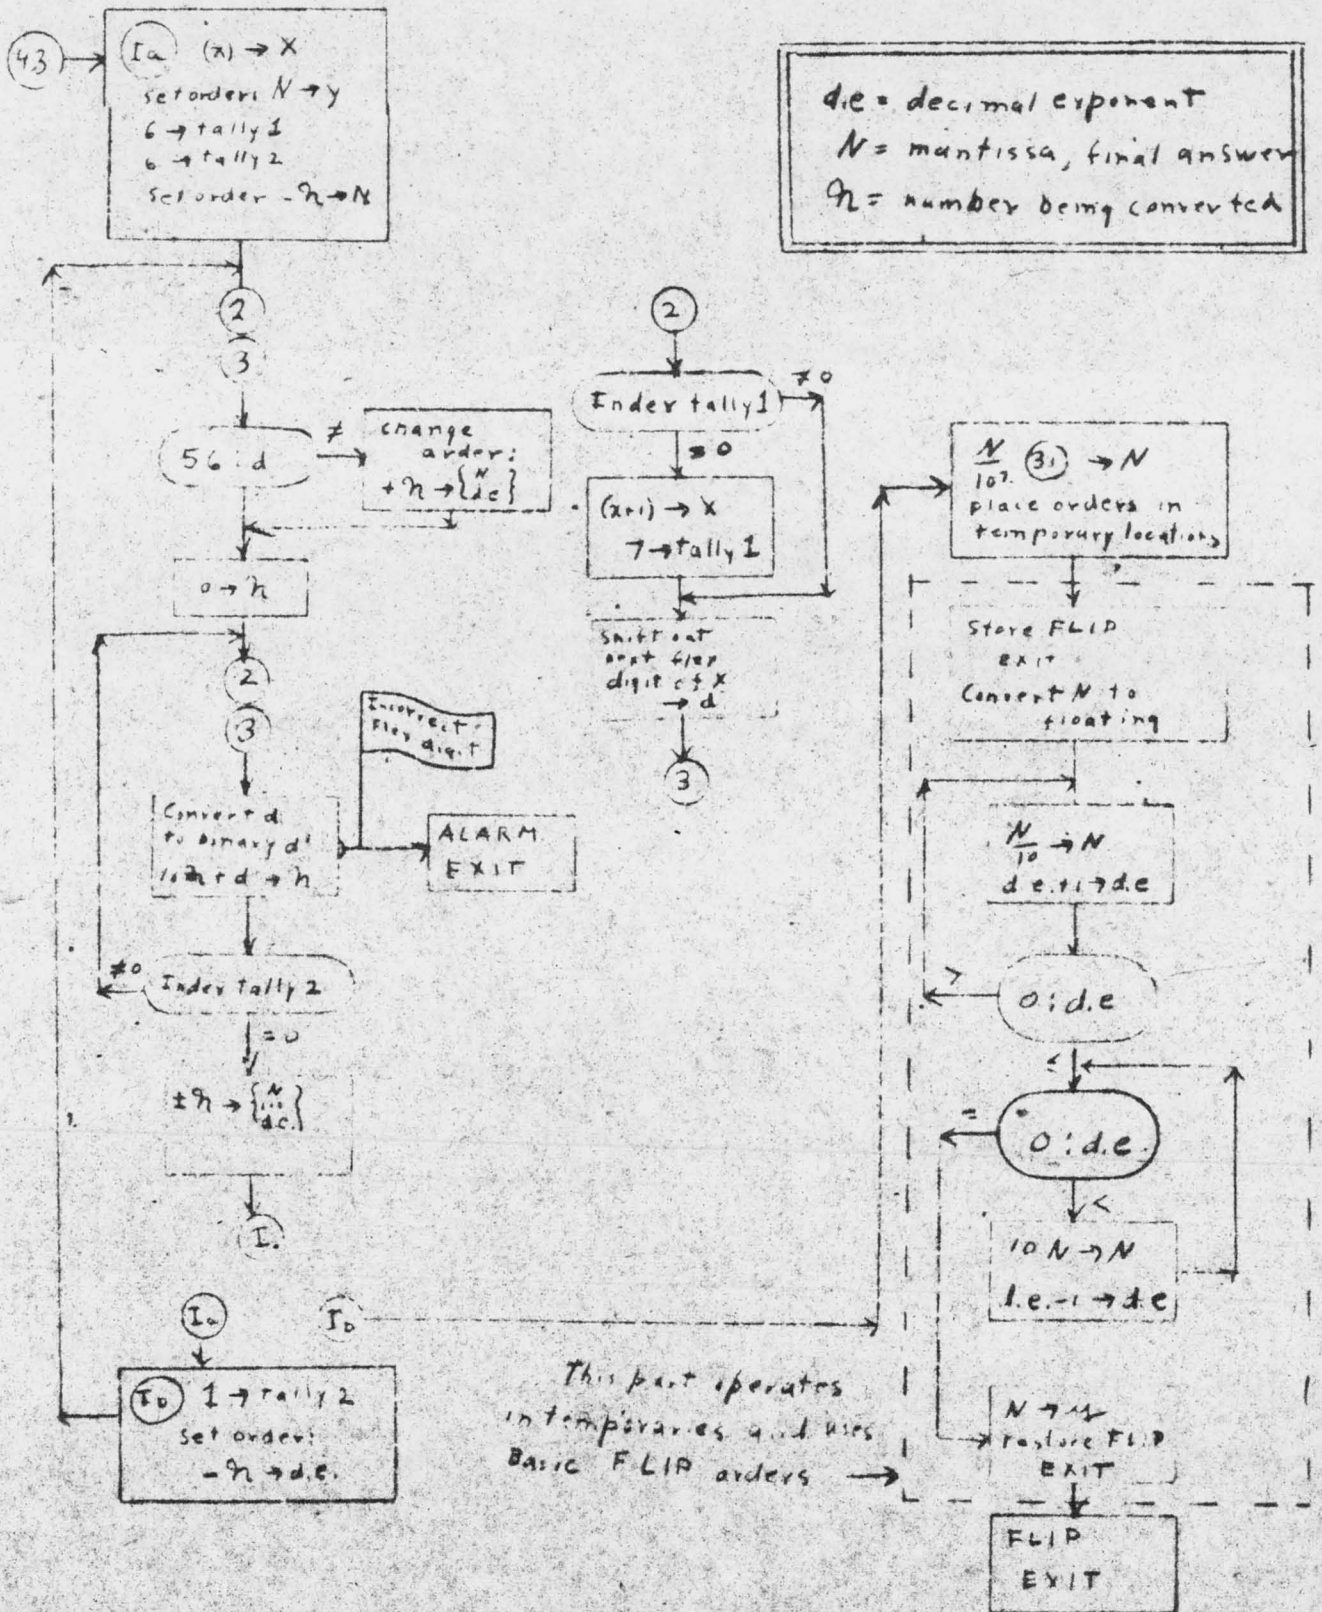 43
Ia (x) → X
set order: N → y
6 → tally 1
6 → tally 2
Set order - n → N
d.e = decimal exponent
N = mantissa, final answer
n = number being converted
2
3
56 : d
≠
change
order:
+ n → {N d.e}
0 → n
2
3
Convert d
to binary d'
10n + d' → n
Incorrect
Flex digit
ALARM
EXIT
≠0
Index tally 2
= 0
± n → {N ... d.e.}
I.
Ia
Ib
Ib 1 → tally 2
Set order:
- n → d.e.
2
Index tally 1
≠ 0
= 0
(x+1) → X
7 → tally 1
Shift out
next flex
digit of X
→ d
3
N/10⁷ (31) → N
place orders in
temporary locations
Store FLIP
exit
Convert N to
floating
N/10 → N
d.e.+1 → d.e
>
0 : d.e
≤
=
0 : d.e.
<
10 N → N
d.e.-1 → d.e
N → y
restore FLIP
EXIT
This part operates
in temporaries and uses
Basic FLIP orders →
FLIP
EXIT